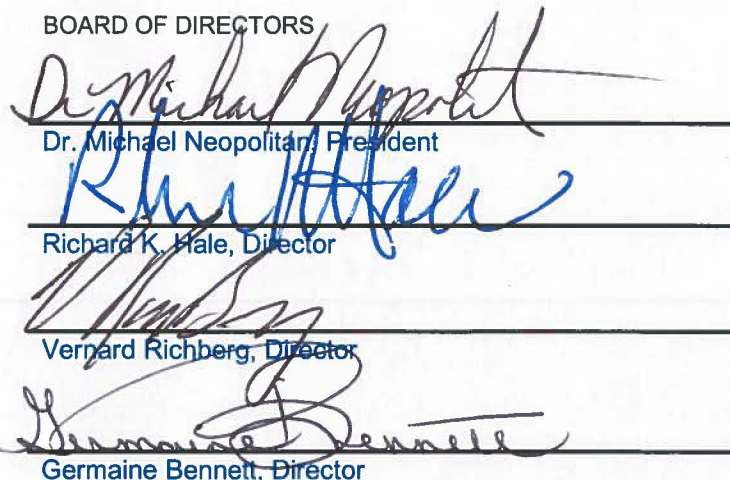 BOARD OF DIRECTORS
Dr Michael Neopolit
Dr. Michael Neopolitan, President
Hale
Richard K. Hale, Director
Vernard Richberg, Director
Germaine Bennett
Germaine Bennett, Director